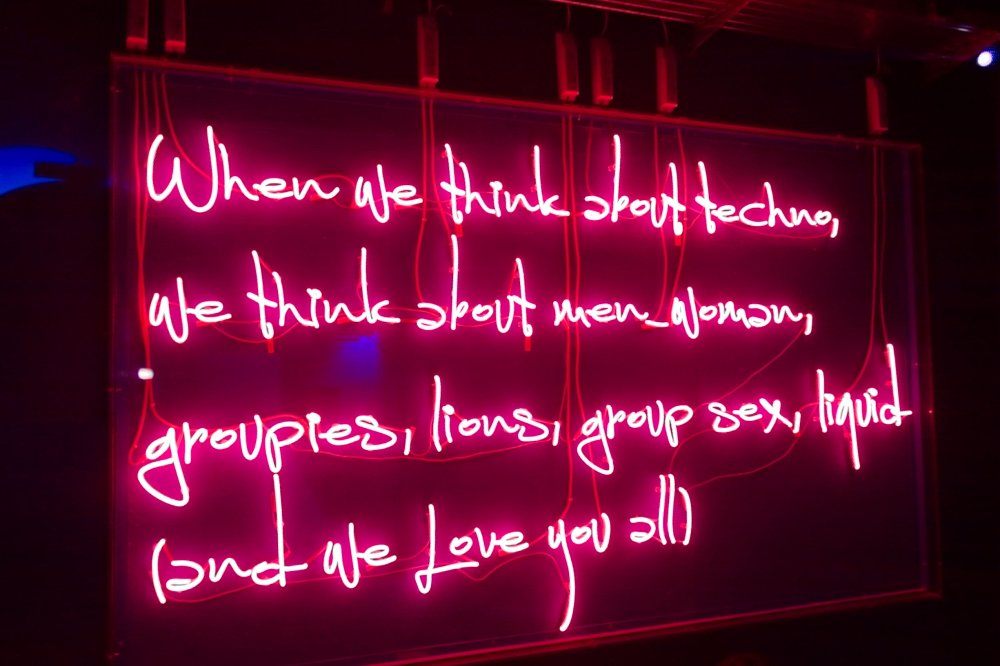 When we think about techno,
we think about men_woman,
groupies, lions, group sex, liquid
(and we Love you all)